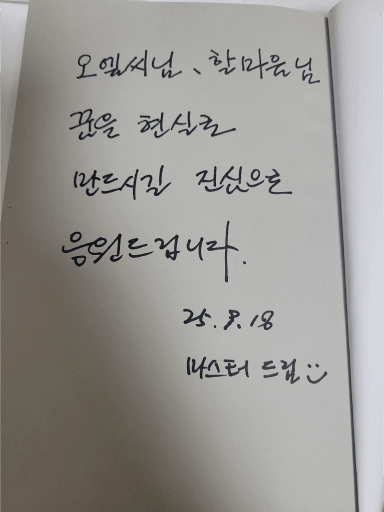 오엘씨님, 할마음님
꿈을 현실로
만드시길 진심으로
응원드립니다.
25. 9. 18
마스터 드림